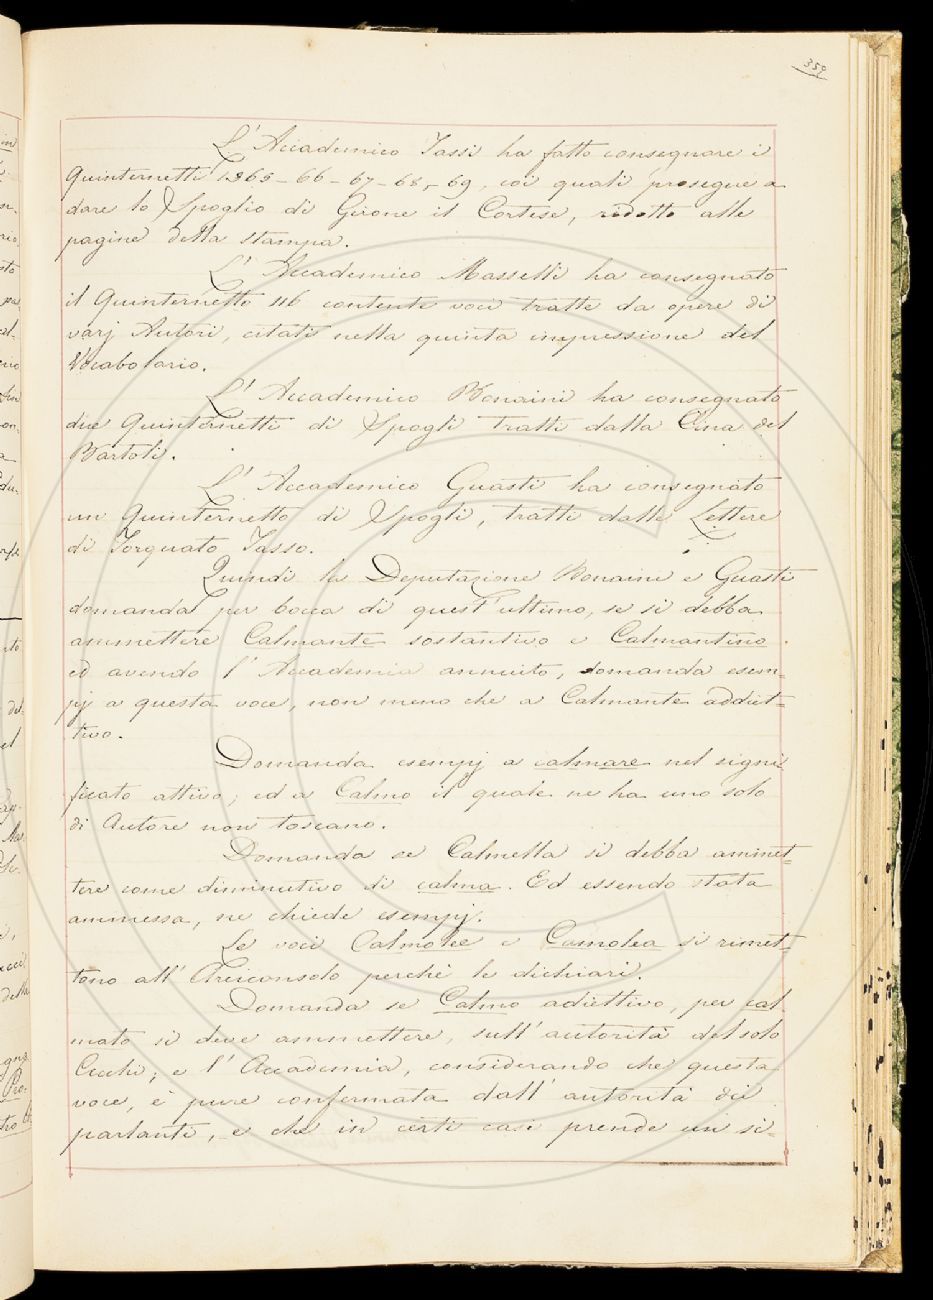 359
L' Accademico Tassi ha fatto consegnare i
Quinternetti 1265 - 66 - 67 - 68, - 69, coi quali prosegue a
dare lo Spoglio di Girone il Cortese, ridotto alle
pagine della stampa.
L' Accademico Masselli ha consegnato
il Quinternetto 116 contente voci tratte da opere di
varj Autori, citati nella quinta impressione del
Vocabolario.
L' Accademico Bonaini ha consegnato
due Quinternetti di Spogli tratti dalla Cina del
Bartoli.
L' Accademico Guasti ha consegnato
un Quinternetto di Spogli, tratti dalle Lettere
di Torquato Tasso.
Quindi la Deputazione Bonaini e Guasti
domanda per bocca di quest' ultimo, se si debba
ammettere Calmante sostantivo e Calmantino.
ed avendo l' Accademia annuito, domanda esem-
pj a questa voce, non meno che a Calmante addiet-
tivo.
Domanda esempj a calmare nel signi
ficato attivo; ed a Calmo il quale ne ha uno solo
di Autore non toscano.
Domanda se Calmella si debba ammet-
tere come diminutivo di calma. Ed essendo stata
ammessa, ne chiede esempj.
Le voci Calmolee e Camolea si rimet-
tono all' Arciconsolo perchè le dichiari.
Domanda se Calmo adiettivo, per cal
mato si deve ammettere, sull' autorità del solo
Cecchi; e l' Accademia, considerando che questa
voce, è pure confermata dall' autorità dei
parlanti, e che in certi casi prende un si-